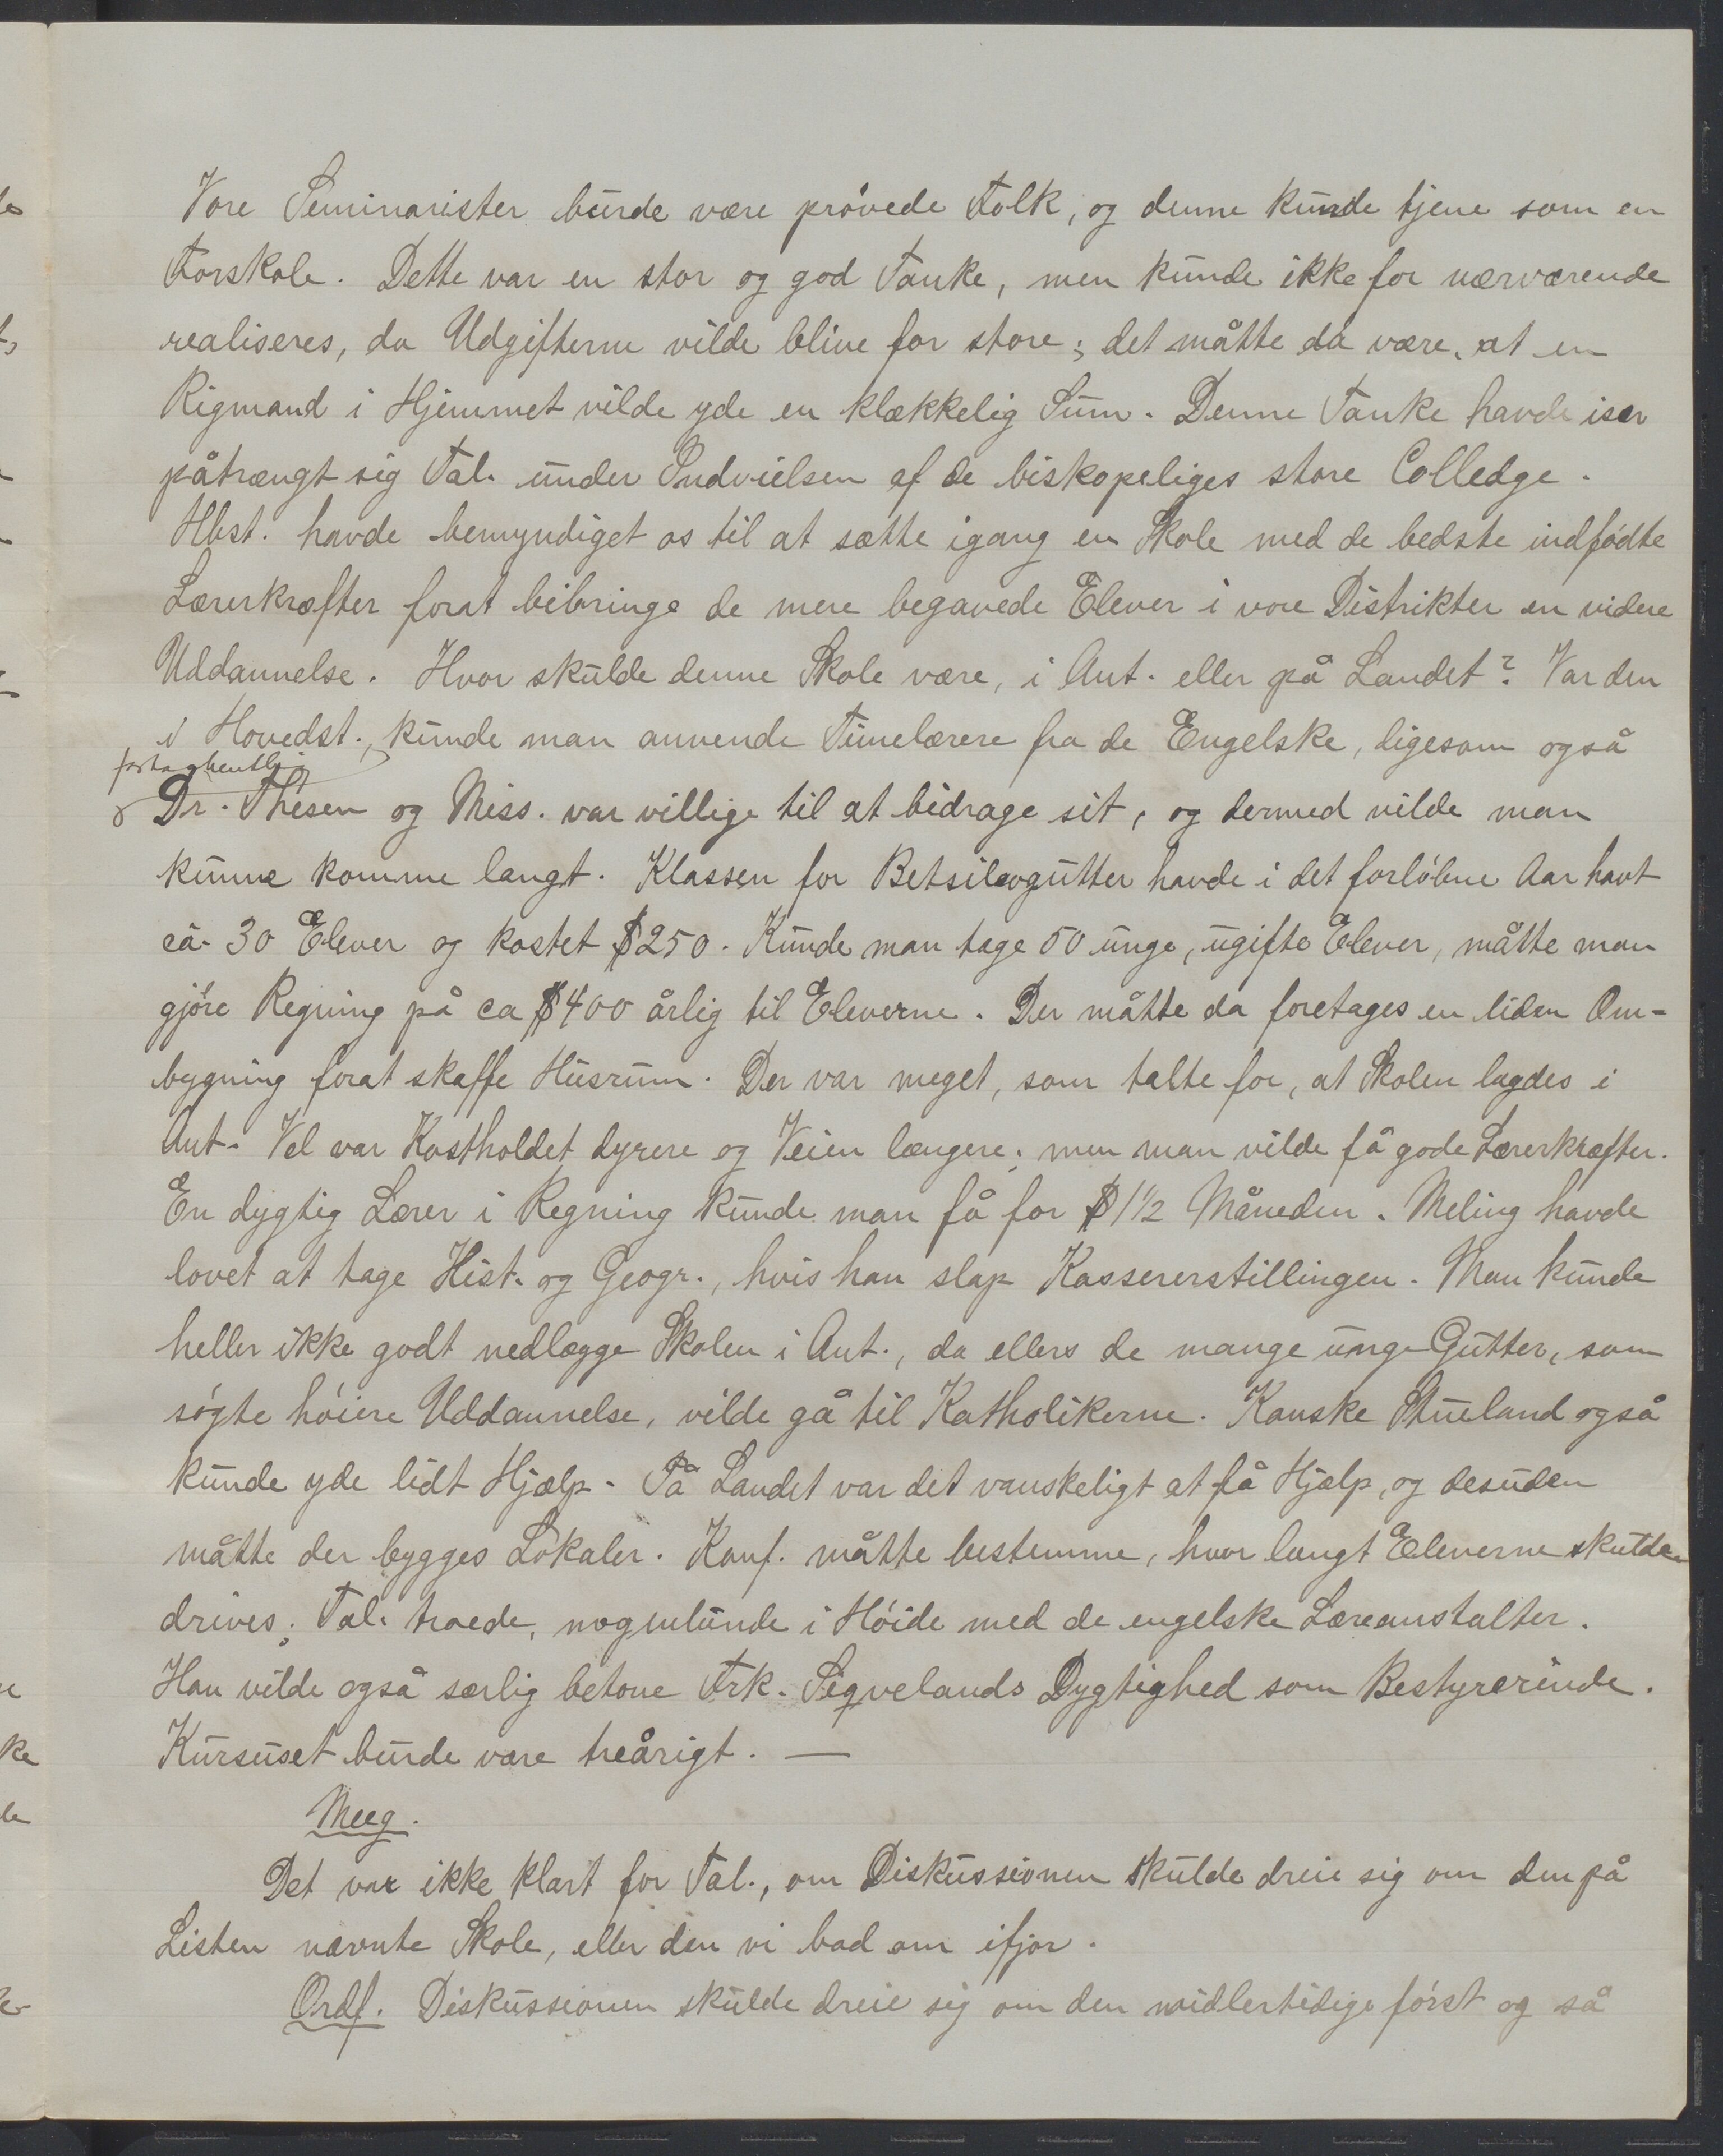 Vore Seminarister burde være prøvede Folk, og denne kunde tjene som en
Forskole. Dette var en stor og god Tanke, men kunde ikke for nærværende
realiseres, da Udgifterne vilde blive for store; det måtte da være, at en
Rigmand i Hjemmet vilde yde en klækkelig Sum. Denne Tanke havde især
påtrængt sig Tal. under Indvielsen af de biskopeliges store Colledge.
Hbst. havde bemyndiget os til at sætte igang en Skole med de bedste indfødte
Lærerkræfter forat bibringe de mere begavede Elever i vore Distrikter en videre
Uddannelse. Hvor skulde denne Skole være, i Ant. eller på Landet? Var den
i Hovedst., kunde man anvende Timelærere fra de Engelske, ligesom også
Dr. Thesen og Miss. var villige til at bidrage sit, og dermed vilde man
kunne komme langt. Klassen for Betsileogutter havde i det forløbne Aar havt
ca. 30 Elever og kostet $250. Kunde man tage 50 unge, ugifte Elever, måtte man
gjøre Regning på ca $400 årlig til Eleverne. Der måtte da foretages en liden Om-
bygning forat skaffe Husrum. Der var meget, som talte for, at Skolen lagdes i
Ant. Vel var Kostholdet dyrere og Veien længere; men man vilde få gode Lærerkræfter.
En dygtig Lærer i Regning kunde man få for $1½ Måneden. Meling havde
lovet at tage Hist. og Geogr., hvis han slap Kassererstillingen. Man kunde
heller ikke godt nedlægge Skolen i Ant., da ellers de mange unge Gutter, som
søgte høiere Uddannelse, vilde gå til Katholikerne. Kanske Stueland også
kunde yde lidt Hjælp. På Landet var det vanskeligt at få Hjælp, og desuden
måtte der bygges Lokaler. Konf. måtte bestemme, hvor langt Eleverne skulde
drives; Tal. troede, nogenlunde i Høide med de engelske Læreanstalter.
Han vilde også særlig betone Frk. Sigvelands Dygtighed som Bestyrerinde.
Kursuset burde være treårigt. —
Meeg.
Det var ikke klart for Tal., om Diskussionen skulde dreie sig om den på
Listen nævnte Skole, eller den vi bad om ifjor.
Ordf. Diskussionen skulde dreie sig om den midlertidige først og så